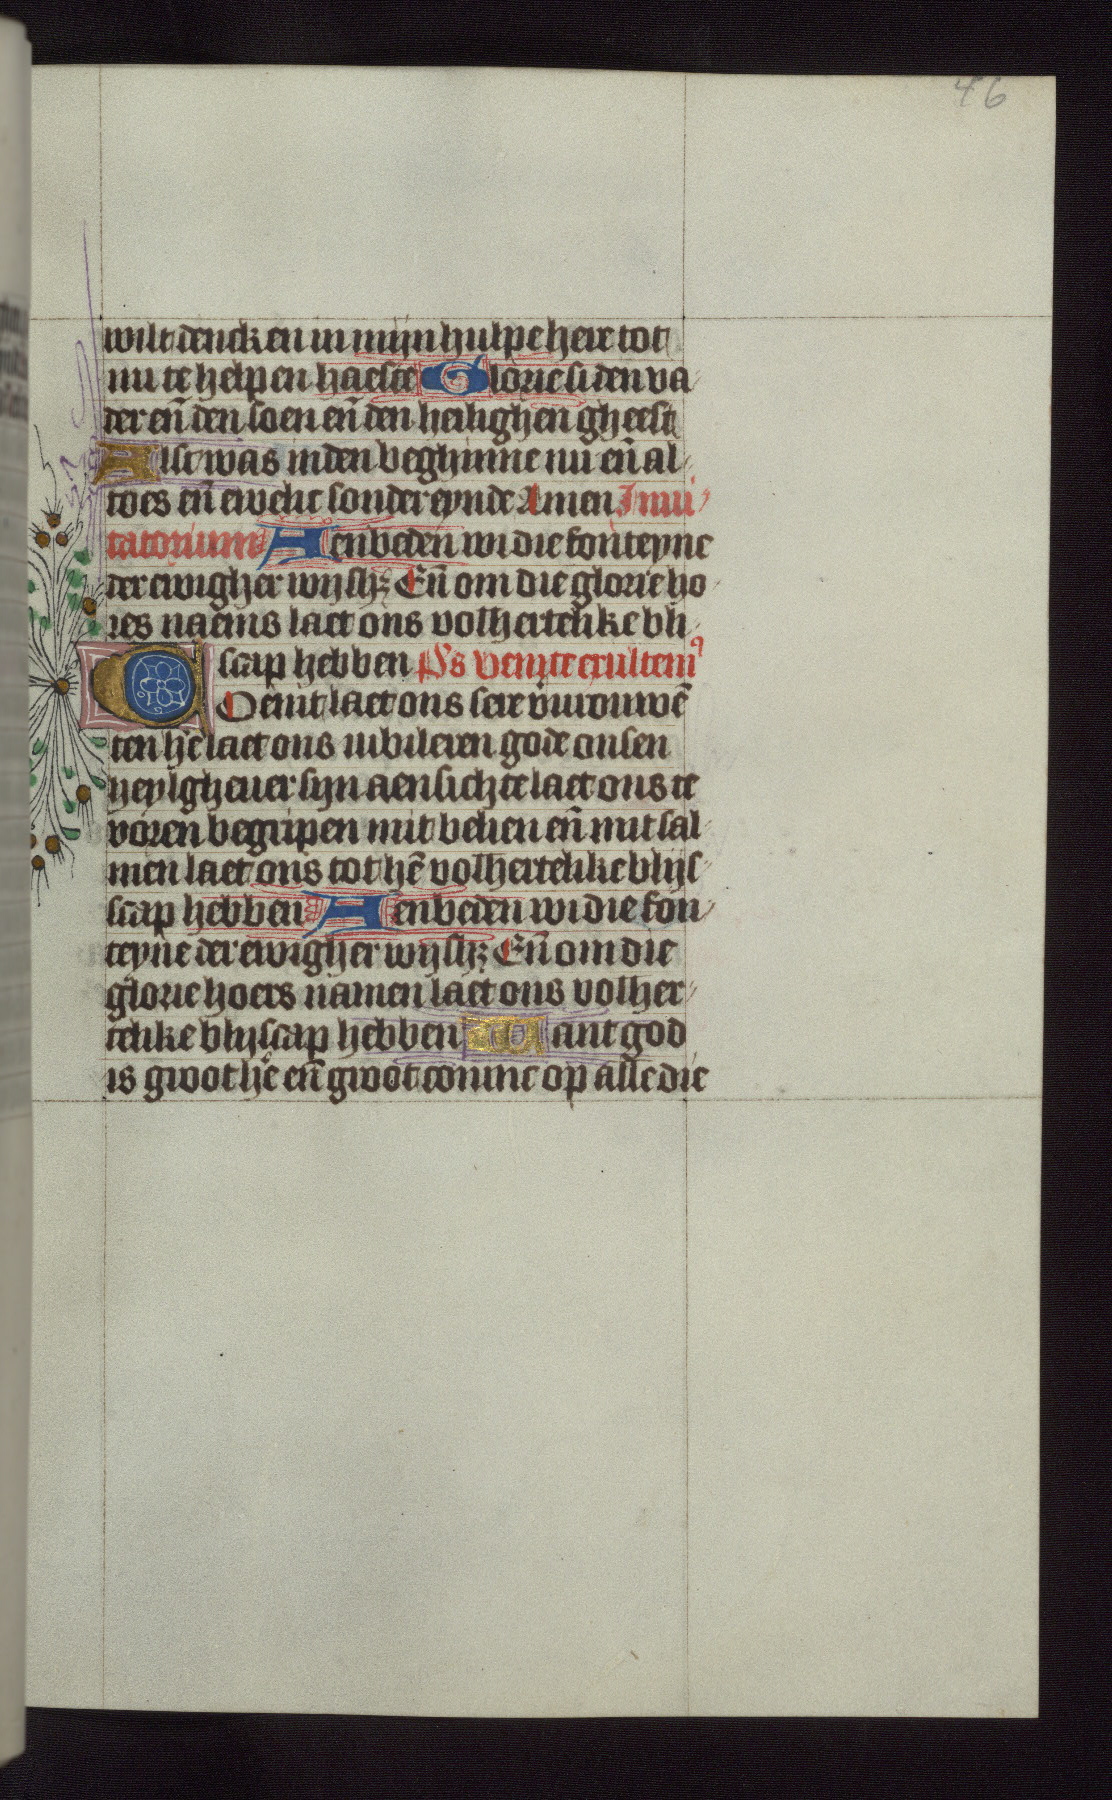 46
wilt dencken in mijn hulpe here tot
mi te helpen haeste Glorie si den va
der en̄ den soen en̄ den heilighen gheest
Alst was inden beghinne nu en̄ al
toes en̄ ewelic sonder eynde Amen Inui
tatorium Aenbeden wi die fonteyne
der ewigher wijsh; En̄ om die glorie ho
res naems laet ons volhertelike bli
scap hebben Ps Venite exultem⁹
Comt laet ons sere v̄vrouwē
ten hē laet ons iubileren gode onsen
heylgheuer sijn aensichte laet ons te
voren begripen mit belien en̄ mit sal
men laet ons tot hē volhertelike blijs
scap hebben Aenbeden wi die fon
teyne der ewigher wijsh; En̄ om die
glorie hoers namen laet ons volher
telike blijscap hebben Want god
is groot he en̄ groot coninc op alle die